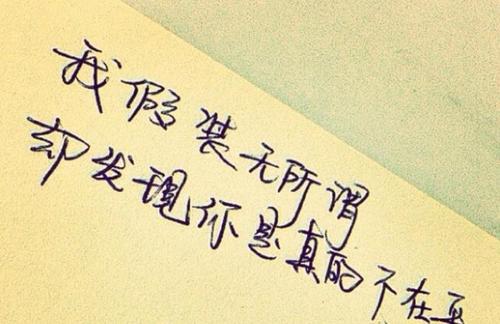 我假装无所谓
却发现你是真的不在